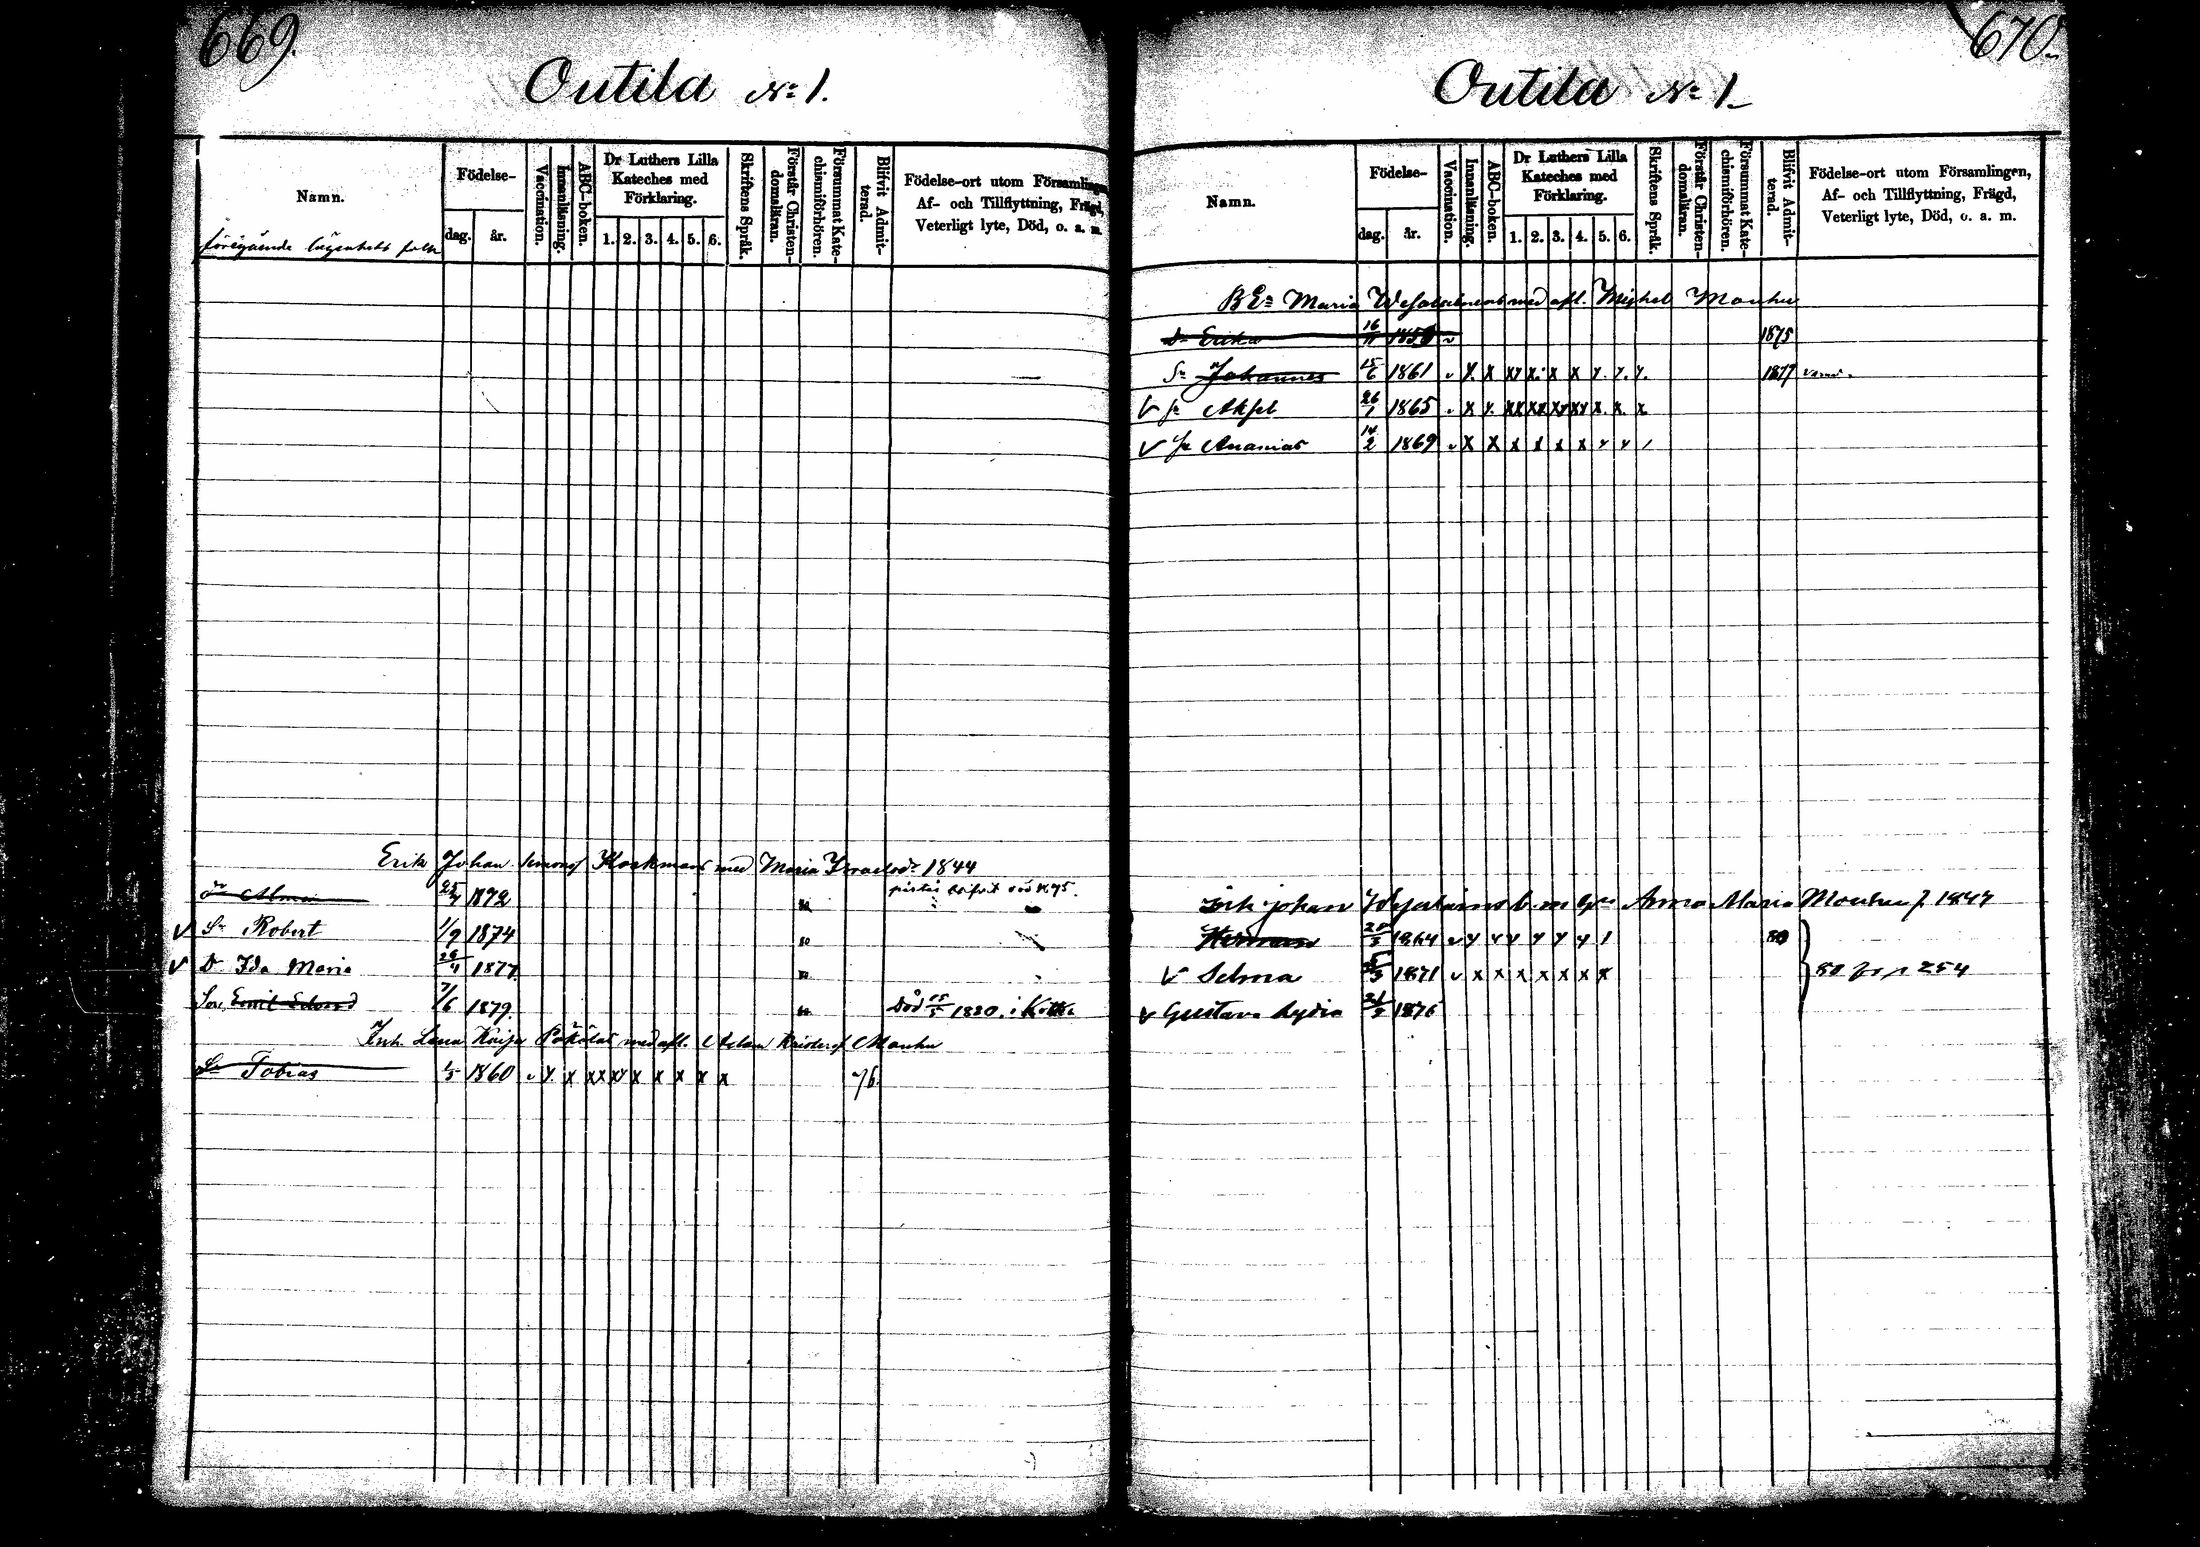 669.
Outila No 1.
Namn.
Födelse-
dag. år.
Vaccination.
Innanläsning.
ABC-boken.
Dr Luthers Lilla
Kateches med
Förklaring.
1. 2. 3. 4. 5. 6.
Skriftens Språk.
Förstår Christen-
domsläran.
Försummat Kate-
chismiförhören.
Blifvit Admit-
terad.
Födelse-ort utom Församlingen,
Af- och Tillflyttning, Frägd,
Veterligt lyte, Död, o. a. m.
föregående lägenhets folk
Erik Johan Simonsf Korkman med Maria 1844
Dr Alma 25/4 1872 80
V Sn Robert 1/9 1874 80
V D Ida Maria 28/4 1877 80
Son Emil Edvard 7/6 1879 80 Död 15/5 1880. i
Inh. Lena Kaija med afl. Adam Mouhu
Sn Tobias 1/5 1860 v y. x xx xy x x x x x 76.
670.
Outila No 1
Namn.
Födelse-
dag. år.
Vaccination.
Innanläsning.
ABC-boken.
Dr Luthers Lilla
Kateches med
Förklaring.
1. 2. 3. 4. 5. 6.
Skriftens Språk.
Förstår Christen-
domsläran.
Försummat Kate-
chismiförhören.
Blifvit Admit-
terad.
Födelse-ort utom Församlingen,
Af- och Tillflyttning, Frägd,
Veterligt lyte, Död, o. a. m.
Maria med afl. Michel Mouhu
Dr Erika 16/11 1850 v 1875
Sn Johannes 15/6 1861 v y. x xy x. x x y. y. y. 1877
V sn Aksel 26/1 1865 v x y. xx xx xy xy x. x. x.
V sn Ananias 14/2 1869 v x x x x x x y y /
Erik Johan Anna Maria Mouhu f. 1847
Herman 1864 v y y y y y y / 80
V Selma 1871 v x x x x x x x 80 p 254
V Gustava Lydia 1876